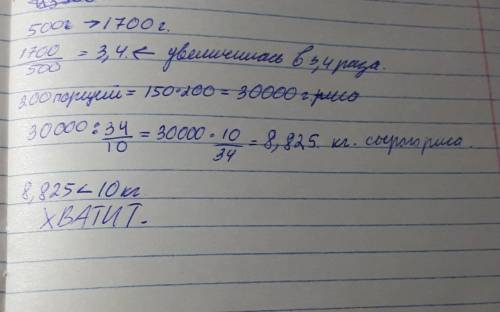 500г → 1700 г.
1700/500 = 3,4. ← увеличилась в 3,4 раза.
200 порций = 150·200 = 30000 г. риса
30000 : 34/10 = 30000 · 10/34 = 8,825. кг. сырого риса.
8,825 < 10 кг
ХВАТИТ.